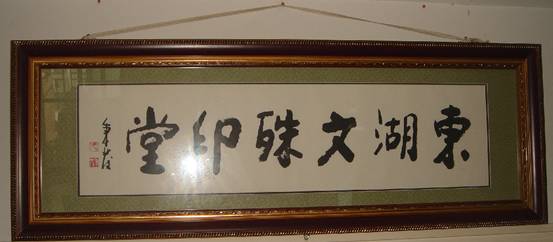 東湖文殊印堂